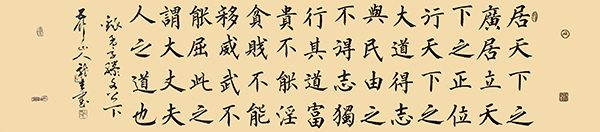 居天下之
廣居立天
下之正位
行天下之
大道得志
與民由之
不得志獨
行其道富
貴不能淫
貧賤不能
移威武不
能屈此之
謂大丈夫
人之道也
錄孟子滕文公下
山人